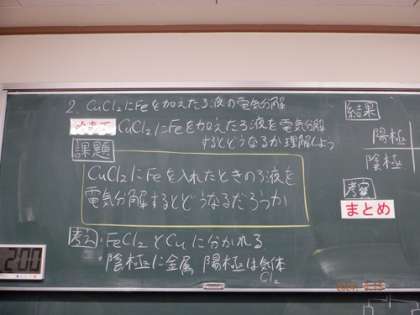 2. CuCl₂にFeを加えたろ液の電気分解
めあて CuCl₂にFeを加えたろ液を電気分解
するとどうなるか理解しよう
課題
CuCl₂にFeを入れたときのろ液を
電気分解するとどうなるだろうか
考え・FeCl₂とCuに分かれる
・陰極に金属 陽極は気体
Cl₂
結果
陽極
陰極
考察
まとめ
2:00